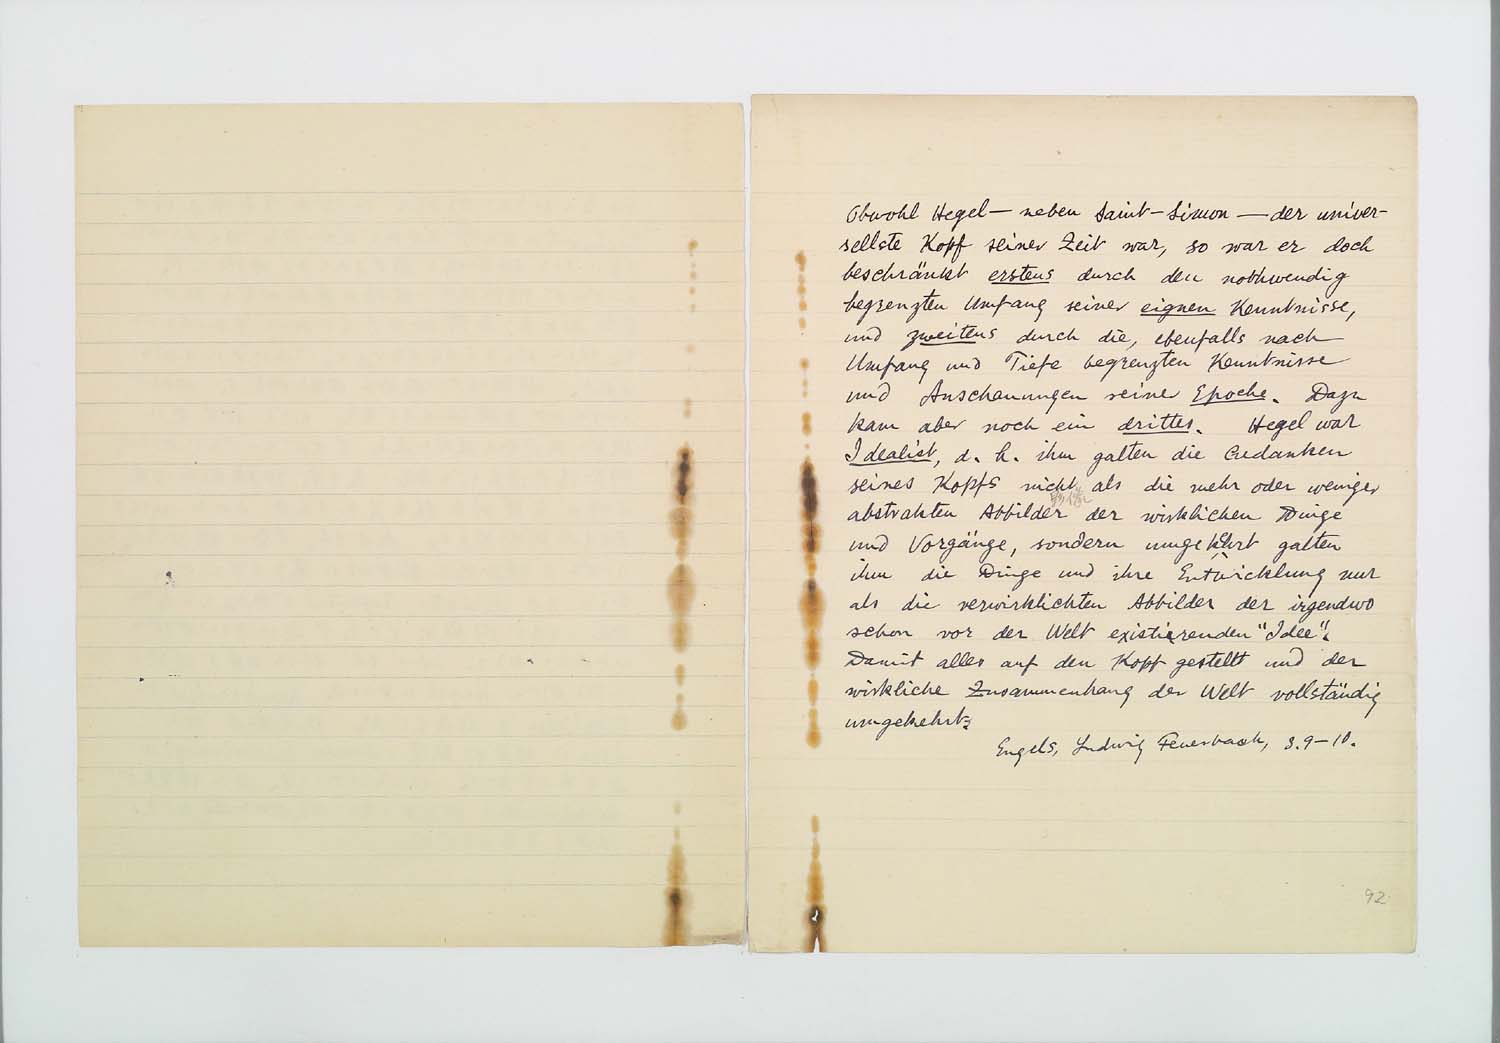 Obwohl Hegel — neben Saint-Simon — der univer-
sellste Kopf seiner Zeit war, so war er doch
beschränkt erstens durch den nothwendig
begrenzten Umfang seiner eignen Kenntnisse,
und zweitens durch die, ebenfalls nach
Umfang und Tiefe begrenzten Kenntnisse
und Anschauungen seiner Epoche. Dazu
kam aber noch ein drittes. Hegel war
Idealist, d. h. ihm galten die Gedanken
seines Kopfs nicht als die mehr oder weniger
abstrakten Abbilder der wirklichen Dinge
und Vorgänge, sondern umgekehrt galten
ihm die Dinge und ihre Entwicklung nur
als die verwirklichten Abbilder der irgendwo
schon vor der Welt existierenden "Idee".
Damit alles auf den Kopf gestellt und der
wirkliche Zusammenhang der Welt vollständig
umgekehrt.
Engels, Ludwig Feuerbach, S. 9–10.
92